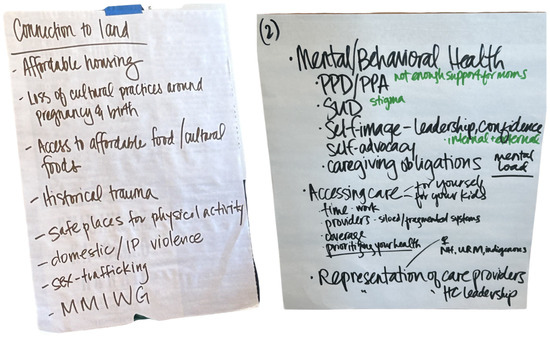 Connection to land
- Affordable housing
- Loss of cultural practices around
pregnancy & birth
- Access to affordable food / cultural
foods
- Historical trauma
- safe places for physical activity
- domestic / IP violence
- sex-trafficking
- MMIWG
(2)
· Mental/Behavioral Health
PPD/PPA not enough support for moms
· SUD stigma
· Self-image - leadership, confidence
internal + external
self-advocacy
· caregiving obligations mental
load
· Accessing care - for yourself
for your kids
· time · work
· providers · siloed/fragmented systems
· coverage
· prioritizing your health
NH, URM, indigenous
· Representation of care providers
" " HC leadership